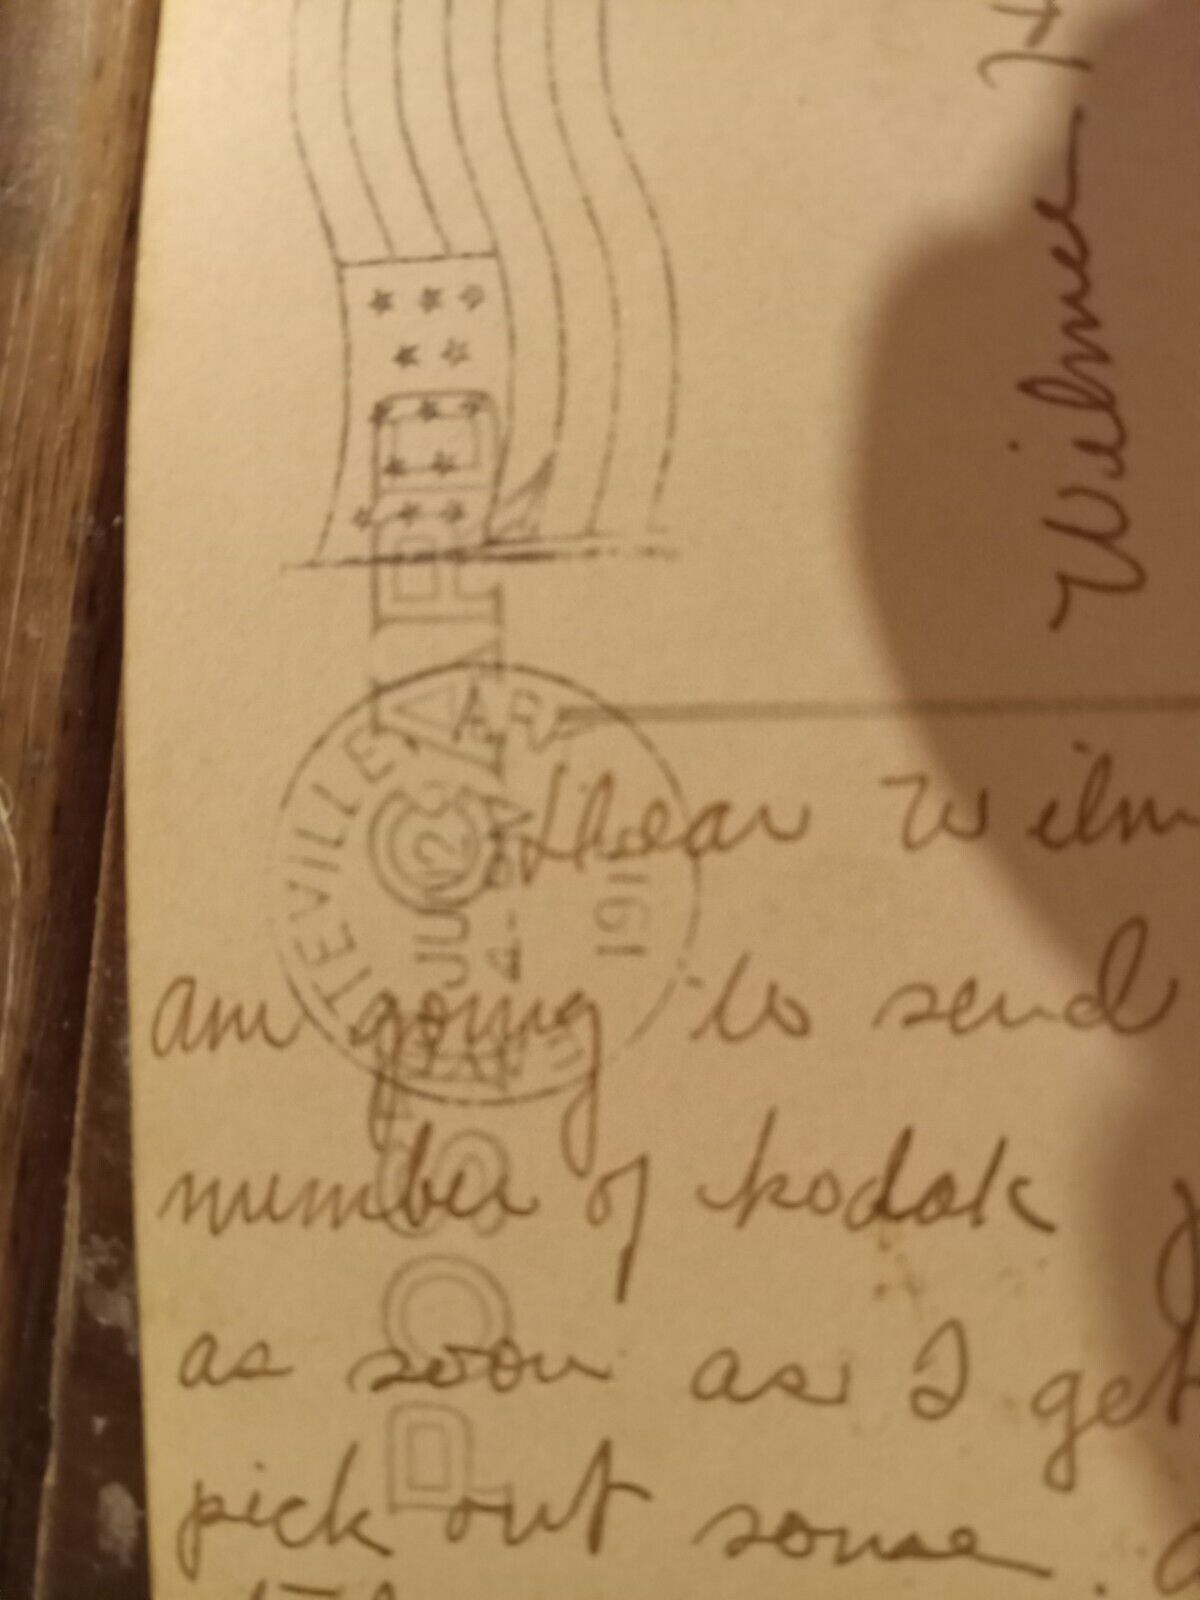 POST CARD
TEVILLE, ARK
JUN 28
4-PM
191
Wilmer
Dear Wilm
am going to send
number of kodak
as soon as I get
pick out some.